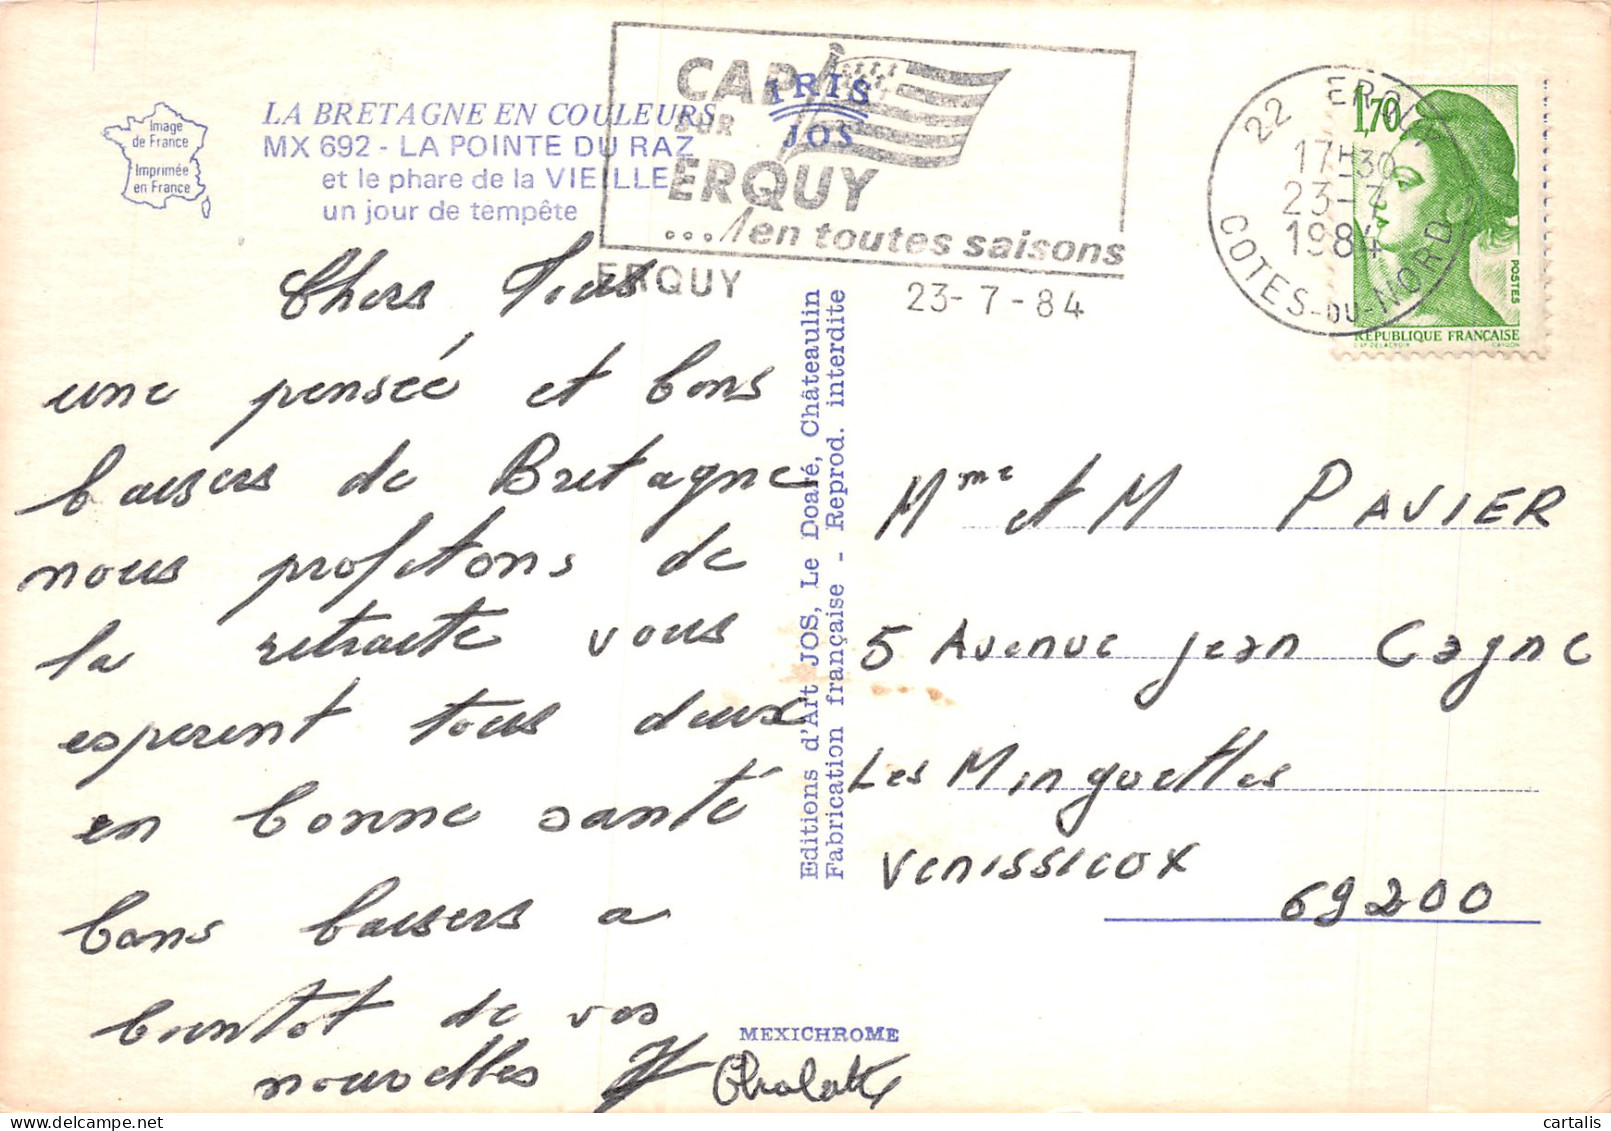 Image
de France
Imprimée
en France
LA BRETAGNE EN COULEURS
MX 692 - LA POINTE DU RAZ
et le phare de la VIEILLE
un jour de tempête
IRIS
JOS
CAP
SUR
ERQUY
... en toutes saisons
ERQUY
23-7-84
22 ERQUY
17H30
23-7
1984
COTES-DU-NORD
1,70
POSTES
REPUBLIQUE FRANÇAISE
Chers Tous
une pensée et bons
baisers de Bretagne
nous profitons de
la retraite vous
esperent tous deux
en bonne santé
bons baisers a
bientot de vos
nouvelles
Editions d'Art JOS, Le Doaré, Châteaulin
Fabrication française - Reprod. interdite
MEXICHROME
Mme et M PAVIER
5 Avenue Jean Cagne
Les Minguettes
Venissieux
69200
cartalis